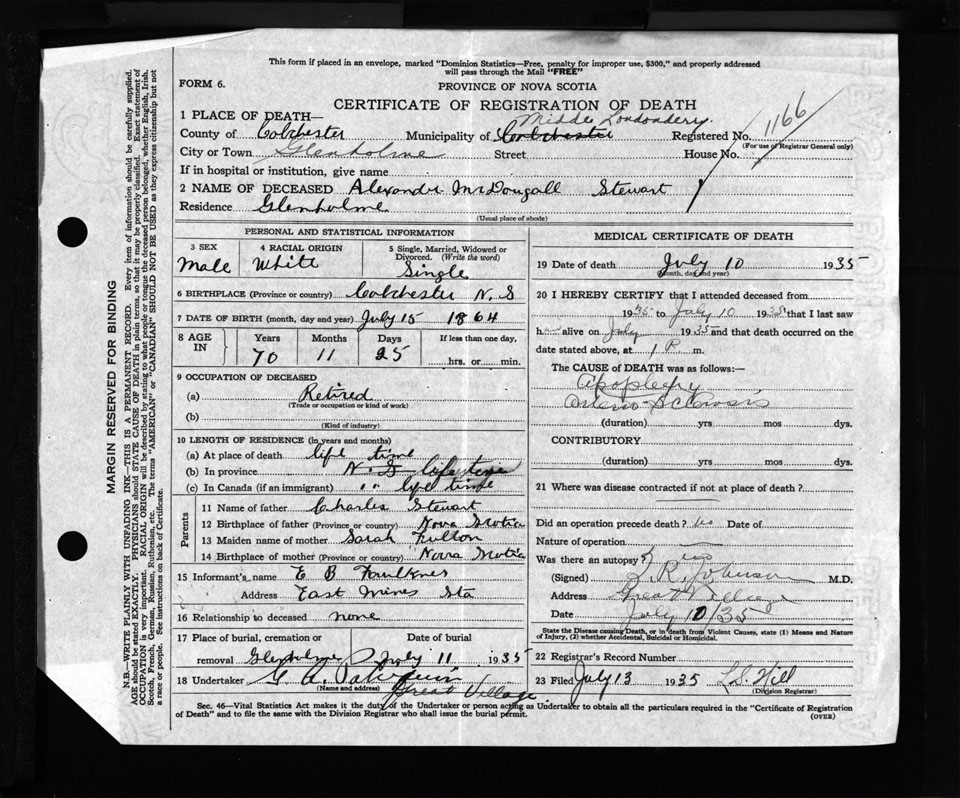 This form if placed in an envelope, marked "Dominion Statistics—Free, penalty for improper use, $300," and properly addressed
will pass through the Mail "FREE"
FORM 6. PROVINCE OF NOVA SCOTIA
CERTIFICATE OF REGISTRATION OF DEATH
1 PLACE OF DEATH— Middle Londonderry.
County of Colchester Municipality of Colchester Registered No. 1166
(For use of Registrar General only)
City or Town Glenholme Street House No.
If in hospital or institution, give name
2 NAME OF DECEASED Alexander McDougall Stewart
Residence Glenholme
(Usual place of abode)
PERSONAL AND STATISTICAL INFORMATION
3 SEX 4 RACIAL ORIGIN 5 Single, Married, Widowed or Divorced. (Write the word)
Male White Single
6 BIRTHPLACE (Province or country) Colchester N. S
7 DATE OF BIRTH (month, day and year) July 15 1864
8 AGE IN Years Months Days If less than one day,
70 11 25 hrs. or min.
9 OCCUPATION OF DECEASED
(a) Retired
(Trade or occupation or kind of work)
(b)
(Kind of industry)
10 LENGTH OF RESIDENCE (in years and months)
(a) At place of death life time
(b) In province N. S life time
(c) In Canada (if an immigrant) " " life time
Parents
11 Name of father Charles Stewart
12 Birthplace of father (Province or country) Nova Scotia
13 Maiden name of mother Sarah Fulton
14 Birthplace of mother (Province or country) Nova Scotia
15 Informant's name E B Faulkner
Address East Mines Sta
16 Relationship to deceased none
17 Place of burial, cremation or Date of burial
removal Glenholme July 11 1935
18 Undertaker G. A.
(Name and address) Great Village
MEDICAL CERTIFICATE OF DEATH
19 Date of death July 10 1935
(Month, day and year)
20 I HEREBY CERTIFY that I attended deceased from
1935 to July 10 1935 that I last saw
h alive on July 1935 and that death occurred on
date stated above, at 1 P. m.
The CAUSE of DEATH was as follows:—
Apoplexy
Arterio-Sclerosis
(duration) yrs mos dys.
CONTRIBUTORY
(duration) yrs mos dys.
21 Where was disease contracted if not at place of death?
Did an operation precede death? no Date of
Nature of operation
Was there an autopsy? no
(Signed) R. Johnson M.D.
Address Great Village
Date July 10/35
State the Disease causing Death, or in death from Violent Causes, state (1) Means and Nature
of Injury, (2) whether Accidental, Suicidal or Homicidal.
22 Registrar's Record Number
23 Filed July 13 1935 L.S. Hill
(Division Registrar)
Sec. 46—Vital Statistics Act makes it the duty of the Undertaker or person acting as Undertaker to obtain all the particulars required in the "Certificate of Registration
of Death" and to file the same with the Division Registrar who shall issue the burial permit. (OVER)
MARGIN RESERVED FOR BINDING
N.B.—WRITE PLAINLY WITH UNFADING INK—THIS IS A PERMANENT RECORD. Every item of information should be carefully supplied.
AGE should be stated EXACTLY. PHYSICIANS should STATE CAUSE OF DEATH in plain terms, so that it may be properly classified. Exact statement of
OCCUPATION is very important. RACIAL ORIGIN will be described by stating to what people or tongue the deceased person belonged, whether English, Irish,
Scotch, French, German, Russian, Ruthenian, etc. The terms "AMERICAN" or "CANADIAN" SHOULD NOT BE USED as they express citizenship but not
a race or people. See instructions on back of Certificate.